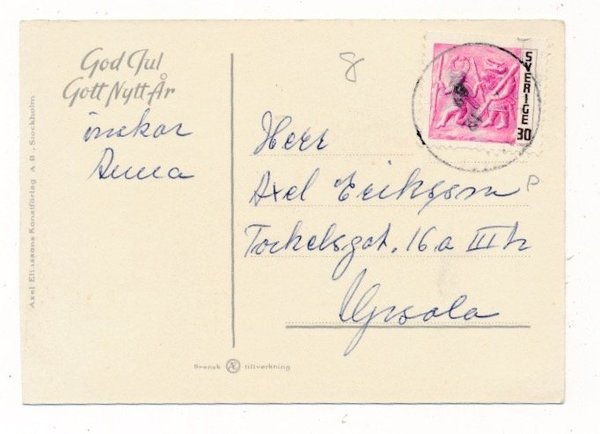 God Jul
Gott Nytt År
önskar
Anna
8
SVERIGE
30
Herr
Axel Eriksson
Torkelsgat. 16a III tr
Upsala
Axel Eliassons Konstförlag A.B., Stockholm
Svensk Æ tillverkning